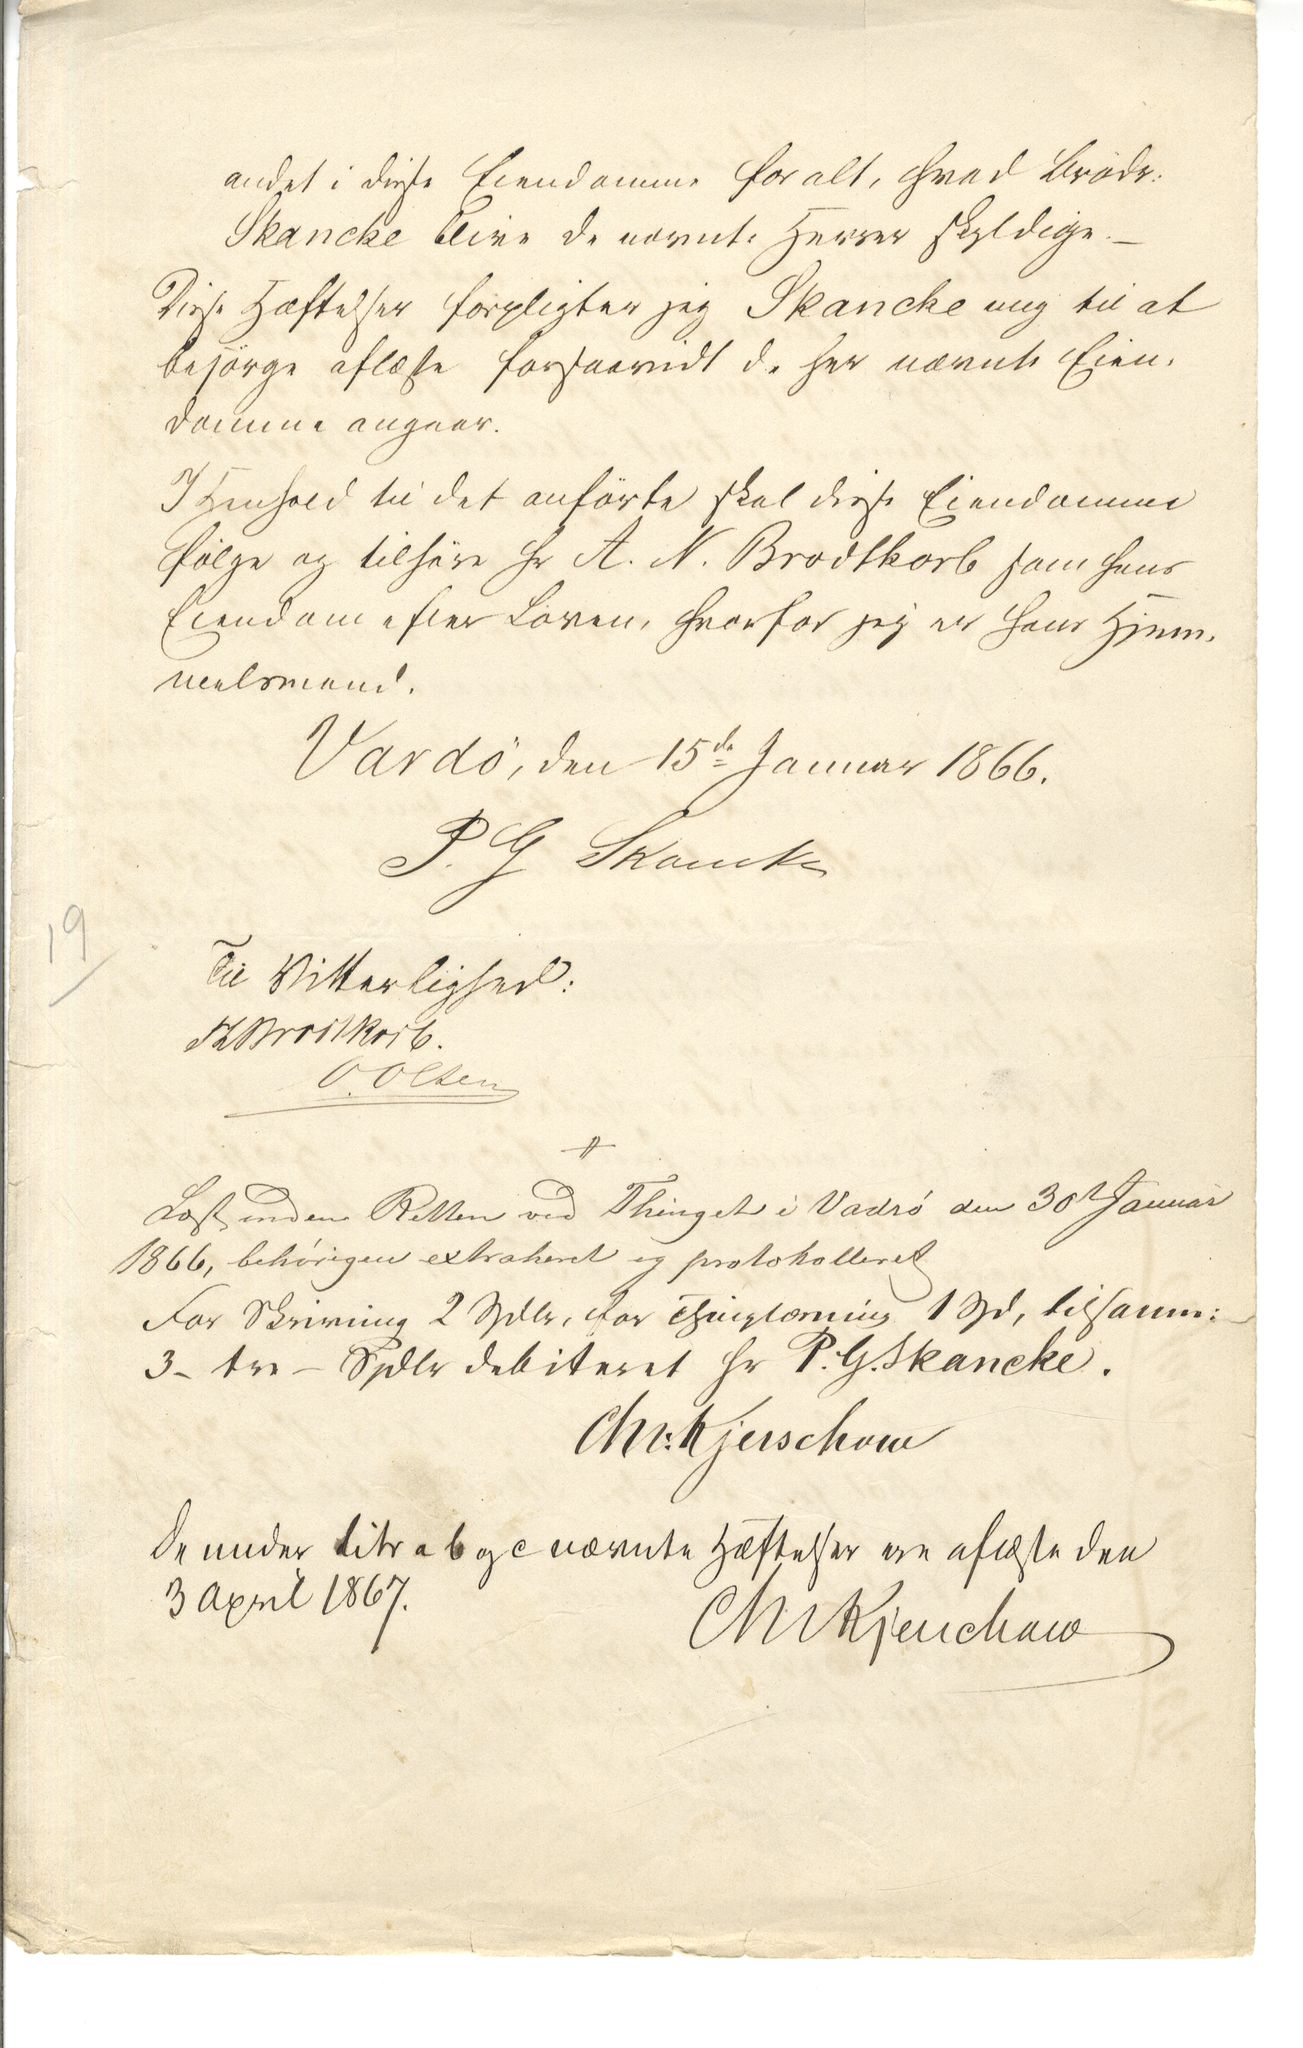 andet i disse Eiendomme for alt, hvad Brødr:
Skancke blive de nævnte Herrer skyldige. —
Disse Hæftelser forpligter jeg Skancke mig til at
besørge aflæste forsaavidt de her nævnte Eien-
domme angaar.
I Henhold til det anførte skal disse Eiendomme
følge og tilhøre Hr A. N. Brodtkorb som hans
Eiendom efter Loven, hvorfor jeg er hans Hjem-
melsmand.
Vardö, den 15de Januar 1866.
P. G Skancke
19
Til Vitterlighed:
Brodtkorb.
O. Olsen
Læst inden Retten ved Thinget i Vadsø den 30t Januar
1866, behörigen extraheret og protokolleret
For Skrivning 2 Spdlr, for Thinglæsning 1 Spd, tilsamm:
3 - tre - Spdlr debiteret Hr P. G. Skancke.
Chr: Kjerschow
De under Litr a b og c nævnte Hæftelser ere aflæste den
3 April 1867.
Chr Kjerschow